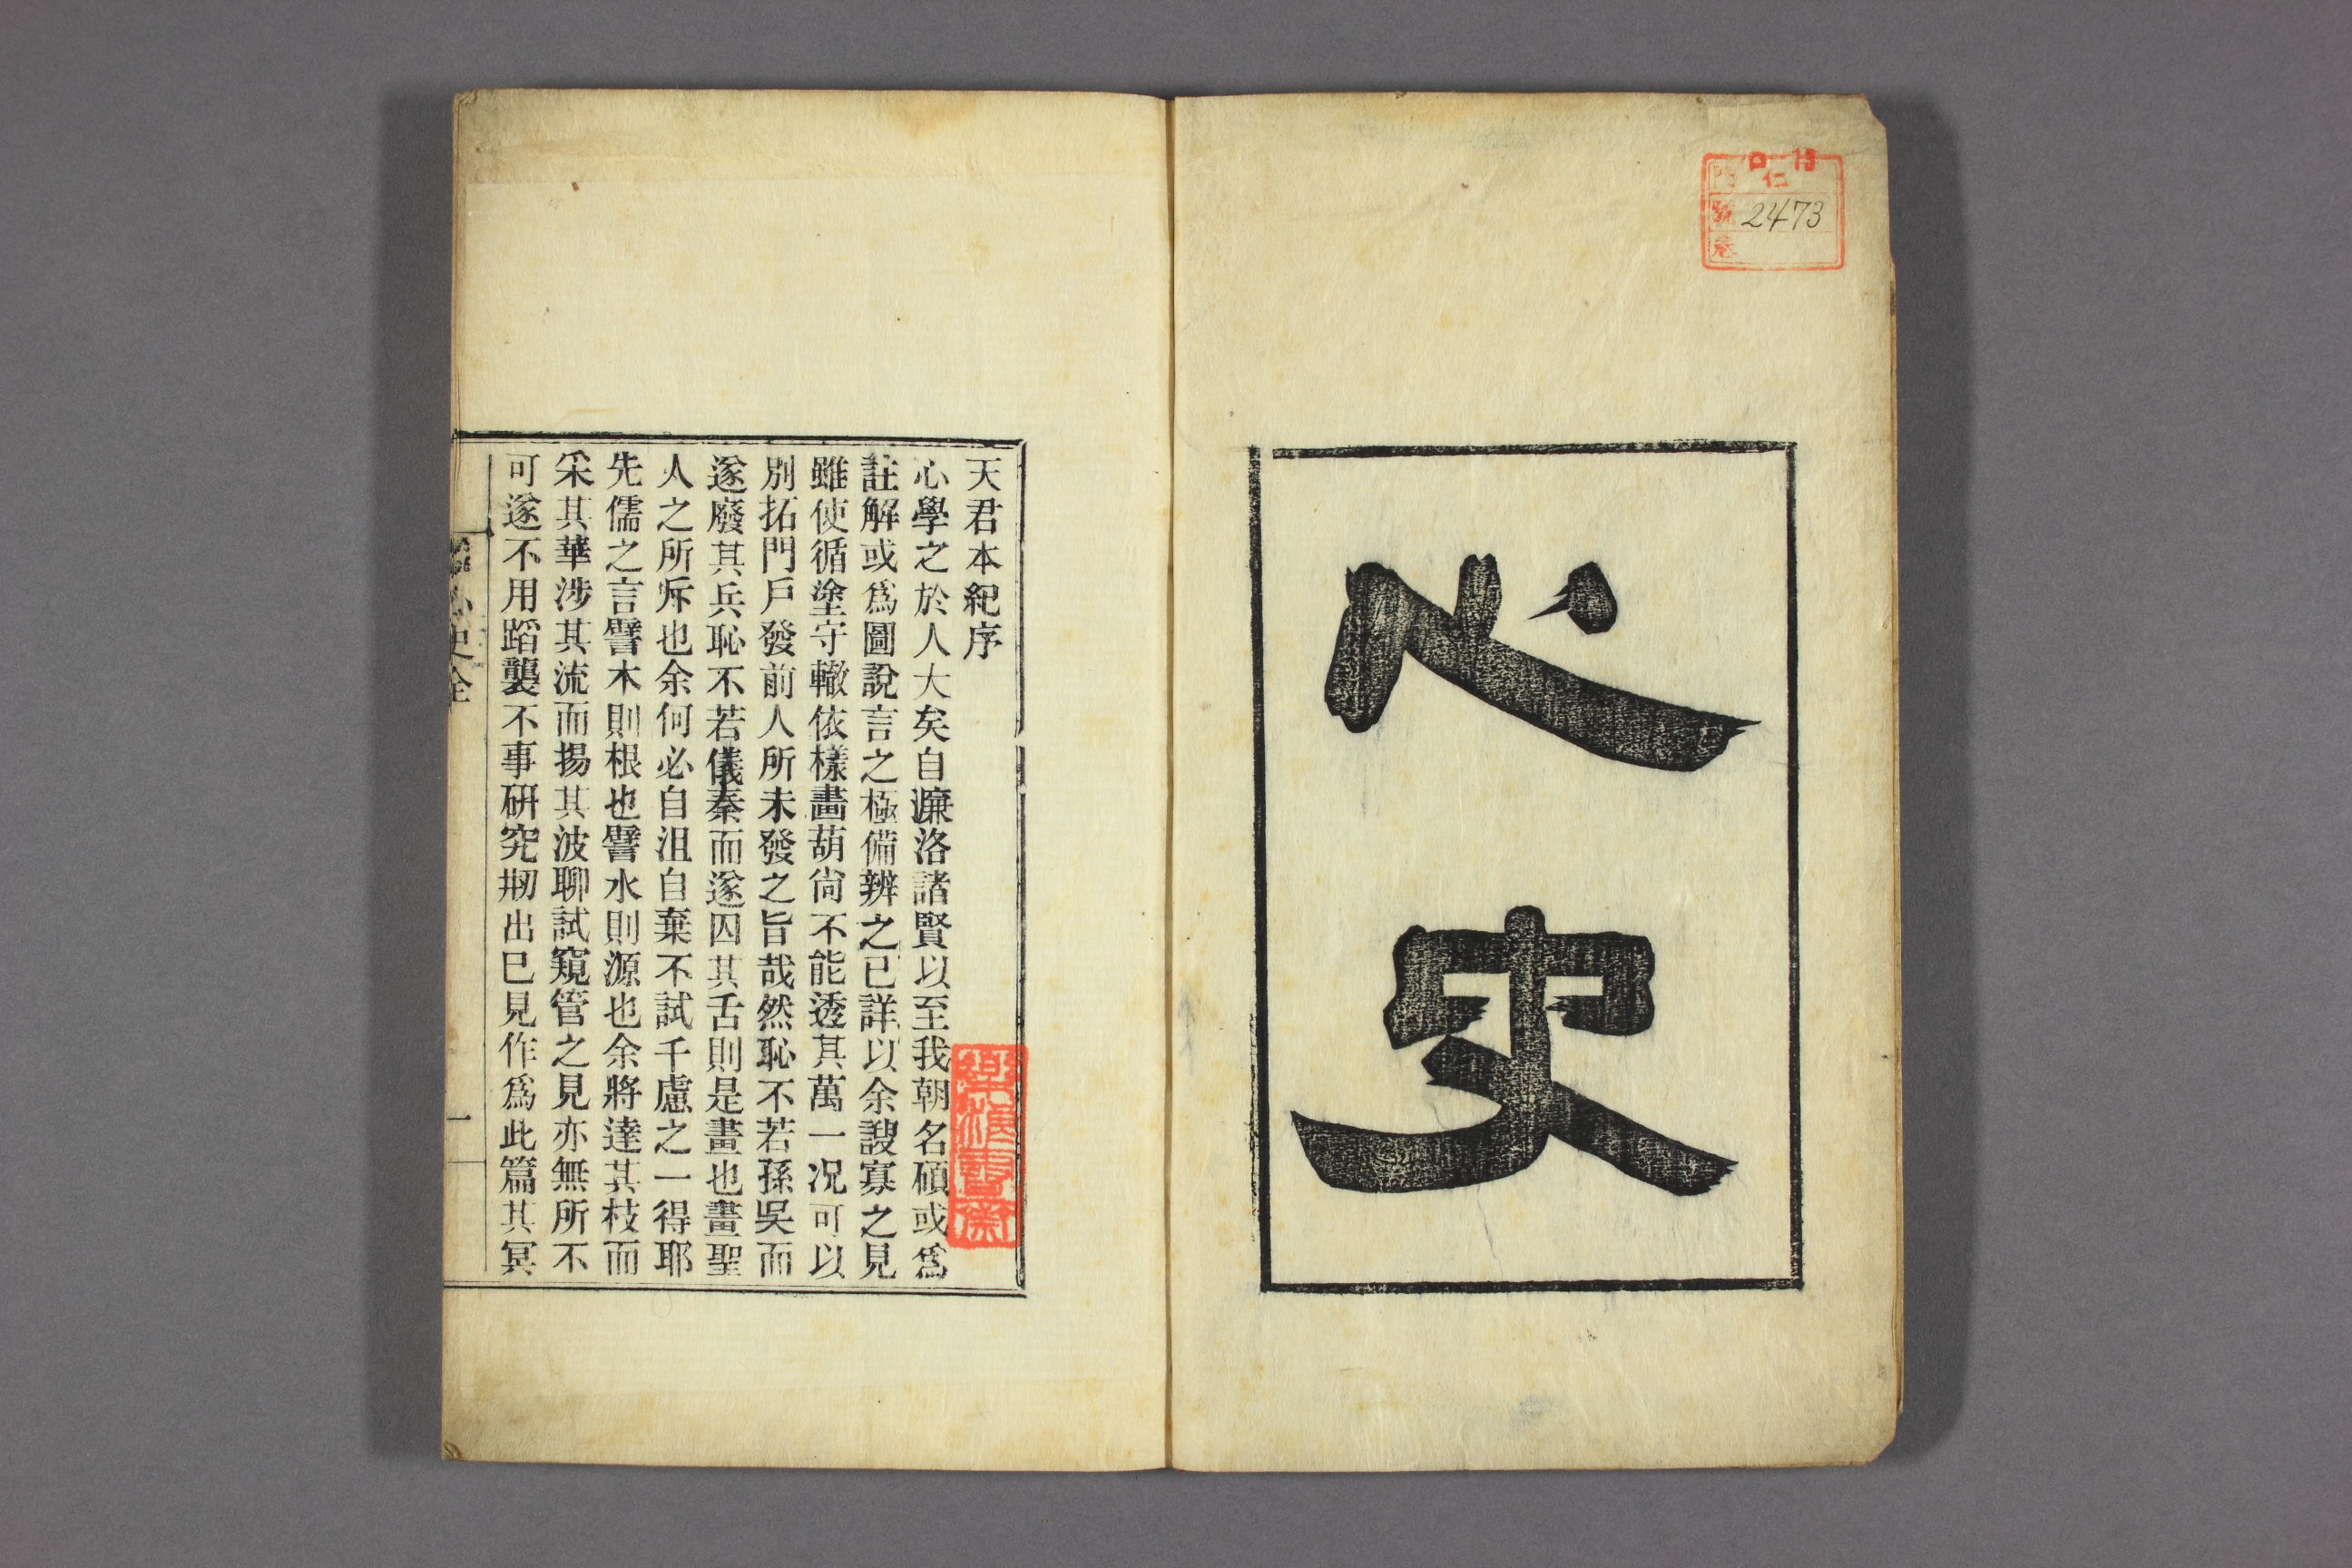 心史
門 ロ仁 13
號 2473
卷
天君本紀序
心學之於人大矣自濂洛諸賢以至我朝名碩或爲
註解或爲圖說言之極備辨之已詳以余謏寡之見
雖使循塗守轍依樣畵葫尙不能透其萬一况可以
別拓門戶發前人所未發之旨哉然恥不若孫吳而
遂廢其兵恥不若儀秦而遂囚其舌則是畫也畫聖
人之所斥也余何必自沮自棄不試千慮之一得耶
先儒之言譬木則根也譬水則源也余將達其枝而
采其華涉其流而揚其波聊試窺管之見亦無所不
可遂不用蹈襲不事硏究刱出已見作爲此篇其冥
心史全
一